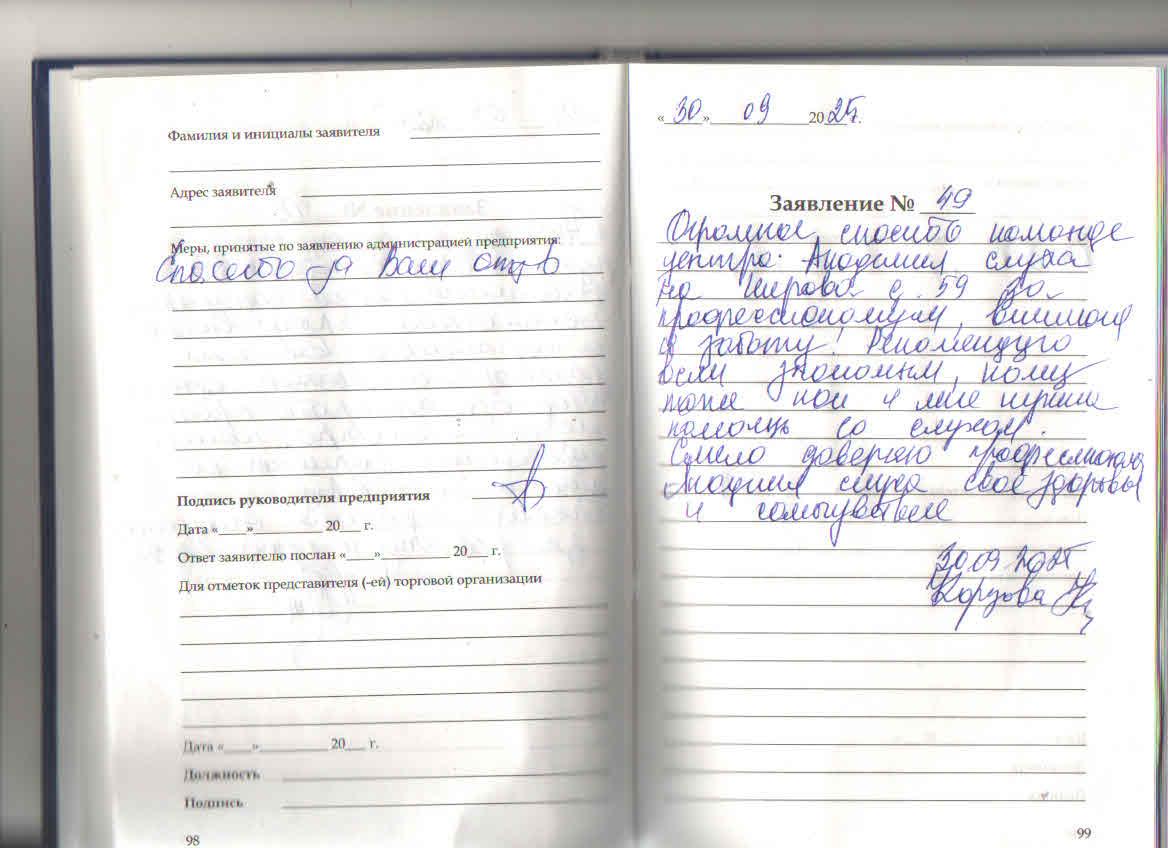 Фамилия и инициалы заявителя
Адрес заявителя
Меры, принятые по заявлению администрацией предприятия:
Спасибо за Ваш отзыв
Подпись руководителя предприятия
Дата «____»__________ 20___ г.
Ответ заявителю послан «____»__________ 20___ г.
Для отметок представителя (-ей) торговой организации
Дата «____»__________ 20___ г.
Должность
Подпись
98
«30» 09 2025г.
Заявление № 49
Огромное спасибо команде
центра Академия слуха
на Кирова д. 59 за
профессионализм, внимание
и заботу! Рекомендую
всем знакомым, кому
тоже как и мне нужна
помощь со слухом.
Смело доверяю профессионалам
Академии слуха свое здоровье
и самочувствие
30.09.2025
Корзова
99